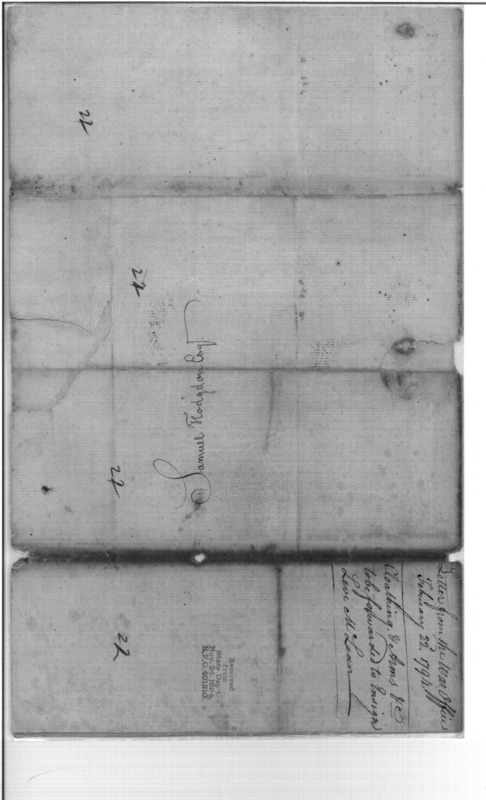 22
22
Samuel Hodgdon Esqr
22
22
Received
from
State Dep't,
Nov. 24, 1894
Letter from the War Office
February 22. 1794
Cloathing & Arms &c
to be forwarded to Ensign
Levi McLean